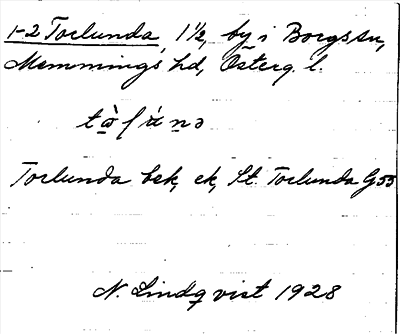 1-2 Torlunda, 1 1/2, by i Borgs sn,
Memmings hd, Österg. l.
Torlunda bsk, ek, St. Torlunda G 55
N. Lindqvist 1928